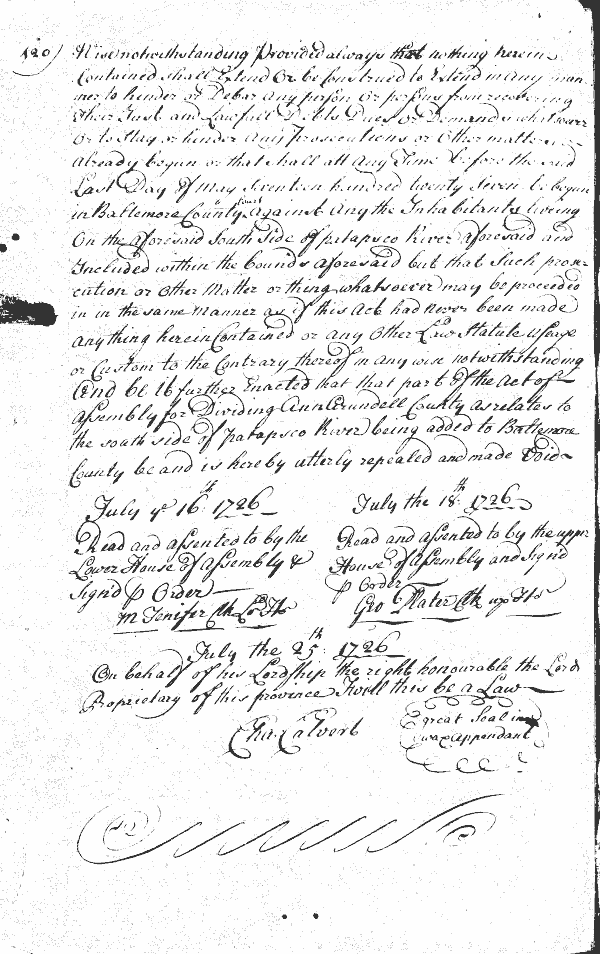 120)
Wise notwithstanding Provided always that nothing herein
Contained shall Extend Or be Construed to Extend in Any man
ner to hinder or Debar Any person Or persons from recovering
their Just and Lawfull Debts Dues or Demands whatsoever
Or to Stay or hinder Any Prosecutions or Other matter
Already begun or that shall att Any Time before the said
Last Day of May Seventeen hundred twenty Seven be begun
in Baltemore County Court Against Any the Inhabitants liveing
On the aforesaid South Side of patapsco River aforesaid and
Included within the bounds aforesaid but that Such prose
cution or Other Matter or thing whatsoever may be proceeded
in in the same Manner as if this Act had Never been made
any thing herein Contained or any Other Law Statute Useage
or Custom to the Contrary thereof in any wise notwithstanding
And be it further Enacted that that part Of the Act of
Assembly for Dividing Ann Arundell County as relates to
the south side of Patapsco River being added to Baltemore
County be and is hereby utterly repealed and made Void
July ye 16th 1726
Read and assented to by the
Lower House of Assembly &
Signd p Order
M Jenifer Clk Lo Hs
July the 18th 1726
Read and assented to by the upper
House of Assembly and Signd
p Order
Geo Plater Clk up Hs
July the 25th 1726
On behalf of his Lordship the right honourable the Lord
Proprietary of this province I will this be a Law
Cha. Calvert
Great Seal in
wax Appendant